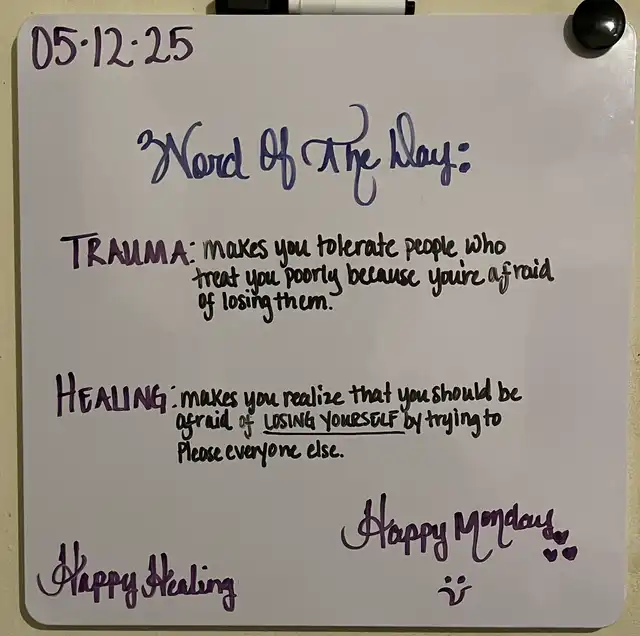 05·12·25
Word Of The Day:
TRAUMA: makes you tolerate people who
treat you poorly because you're afraid
of losing them.
HEALING: makes you realize that you should be
afraid of LOSING YOURSELF by trying to
Please everyone else.
Happy Monday
Happy Healing